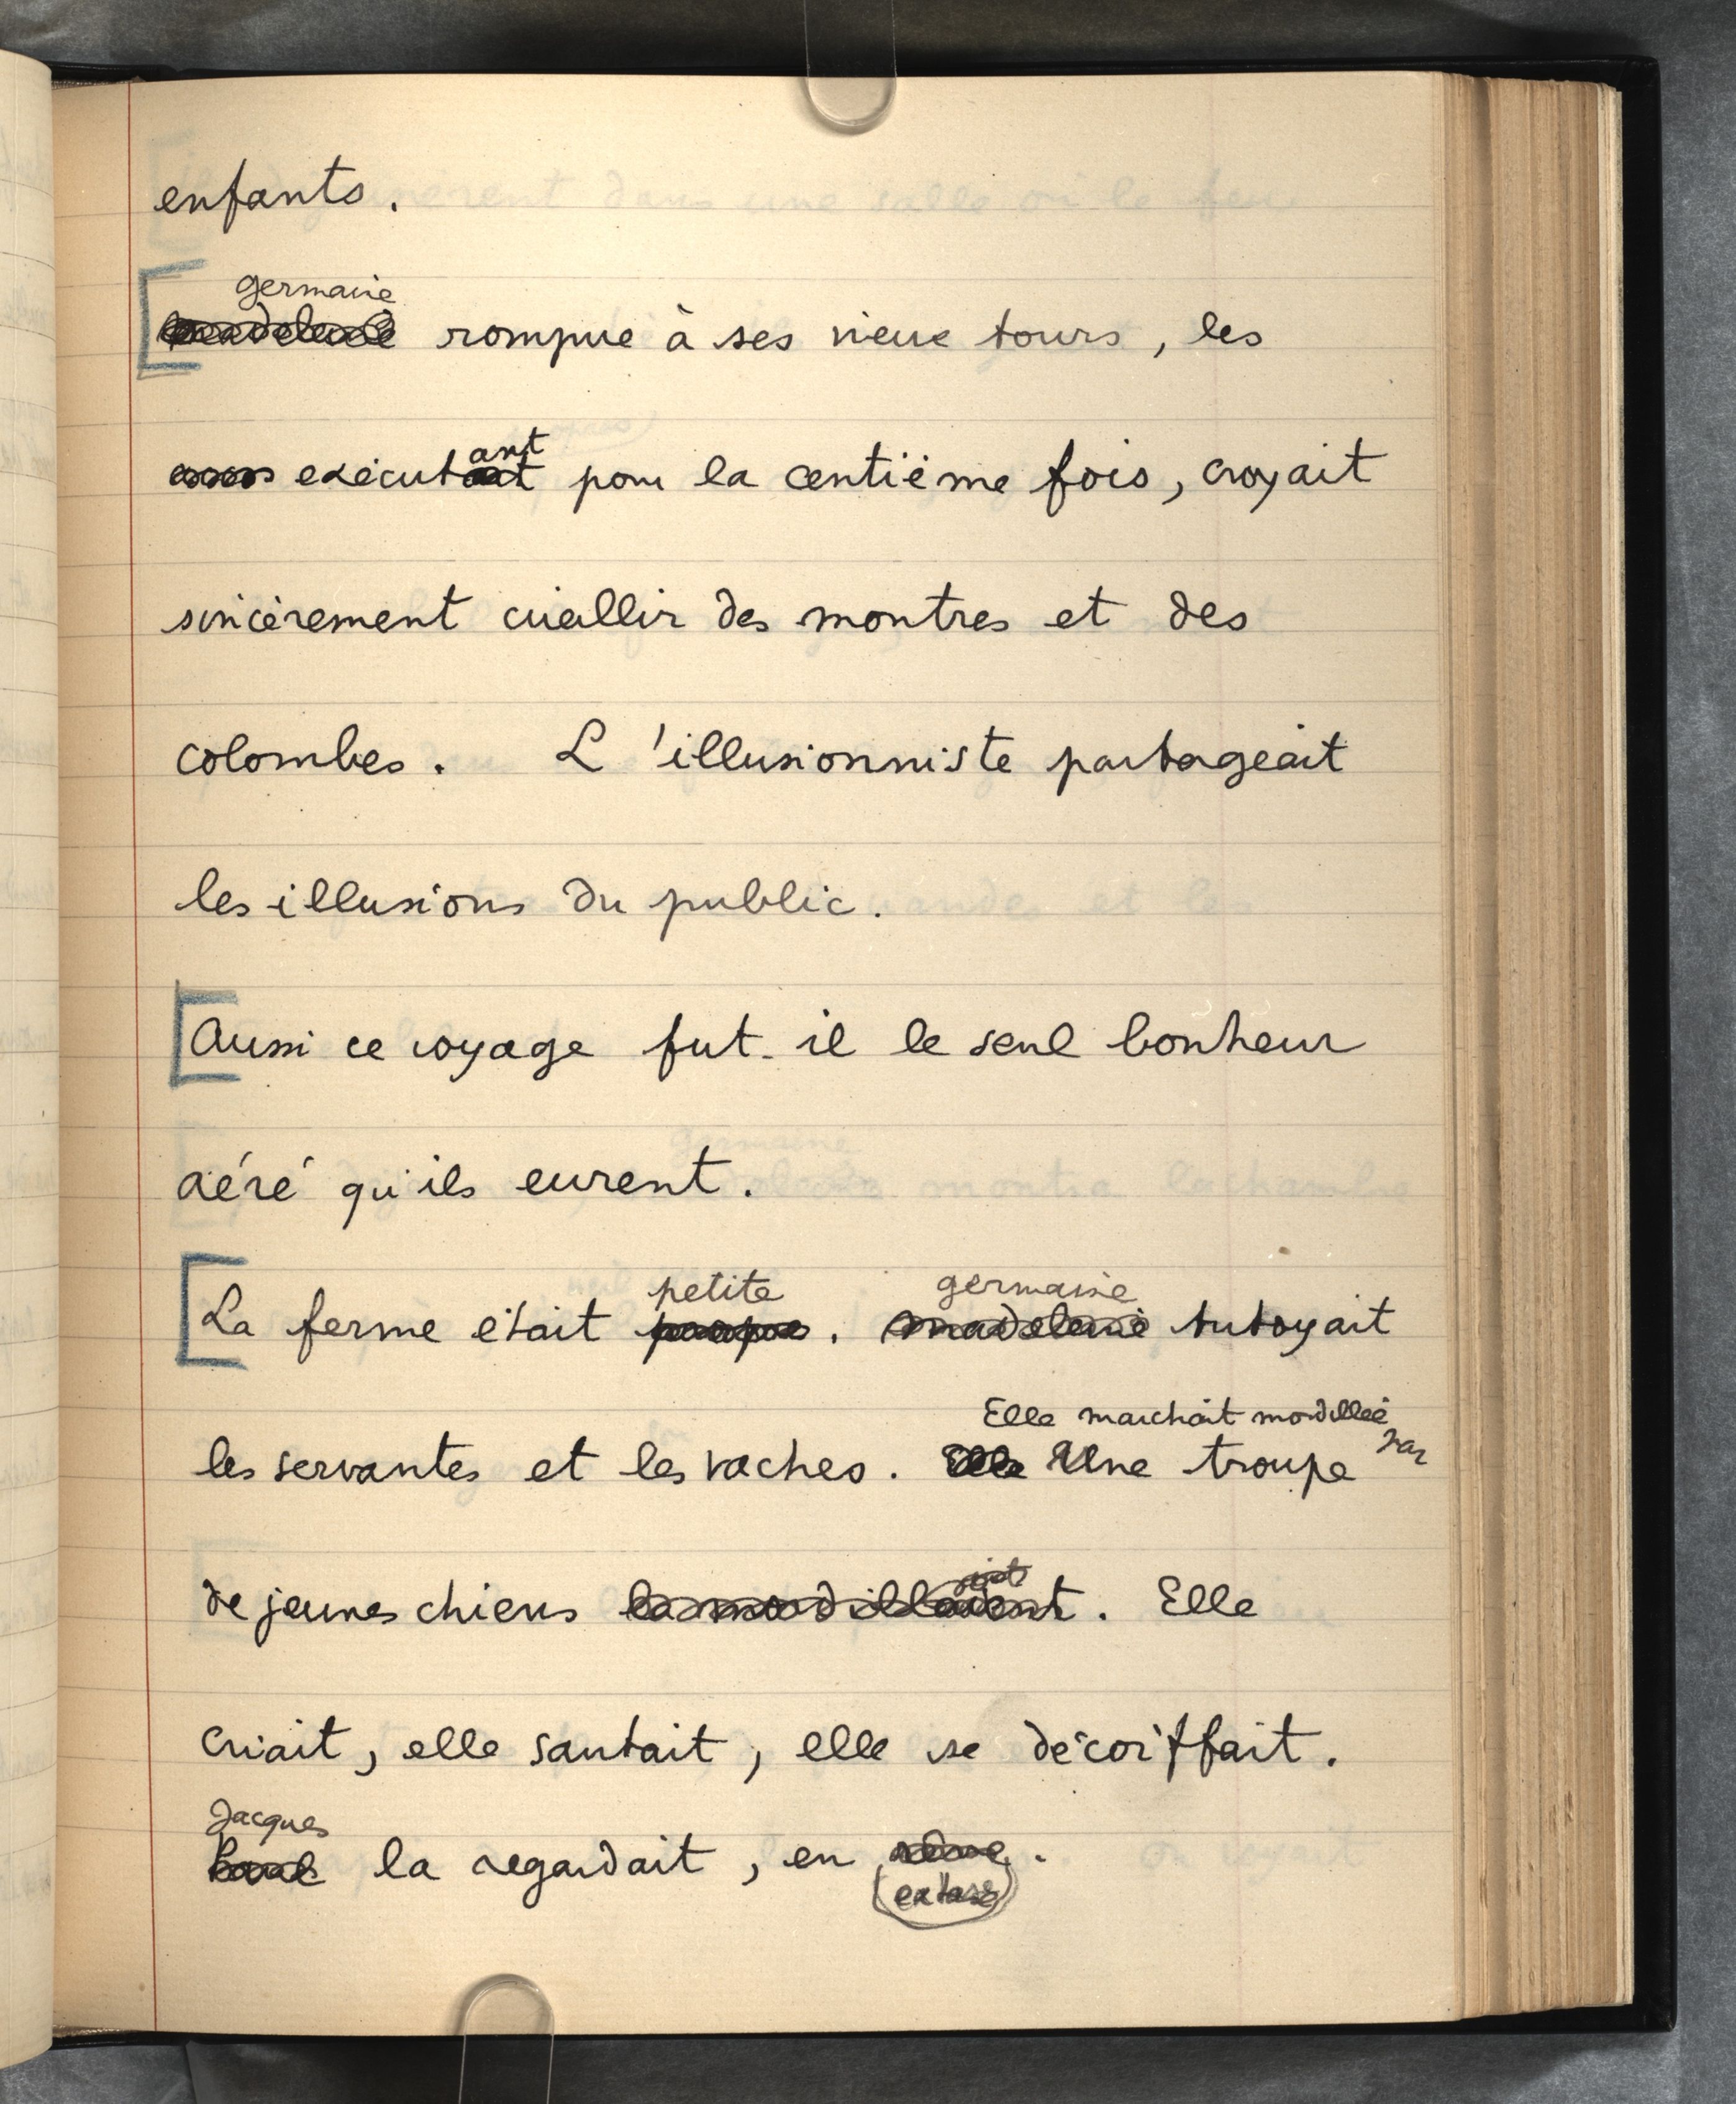 enfants.
germaine
madeleine rompue à ses vieux tours, les
ant
exécutant pour la centième fois, croyait
sincèrement cueillir des montres et des
colombes. L'illusionniste partageait
les illusions du public.
Aussi ce voyage fut-il le seul bonheur
aéré qu'ils eurent.
petite germaine
La ferme était propre. madeleine tutoyait
Elle marchait mordillée par
les servantes et les vaches. Elle Une troupe
de jeunes chiens la mordillaient. Elle
criait, elle sautait, elle se décoiffait.
Jacques
Paul la regardait, en rêve.
extase